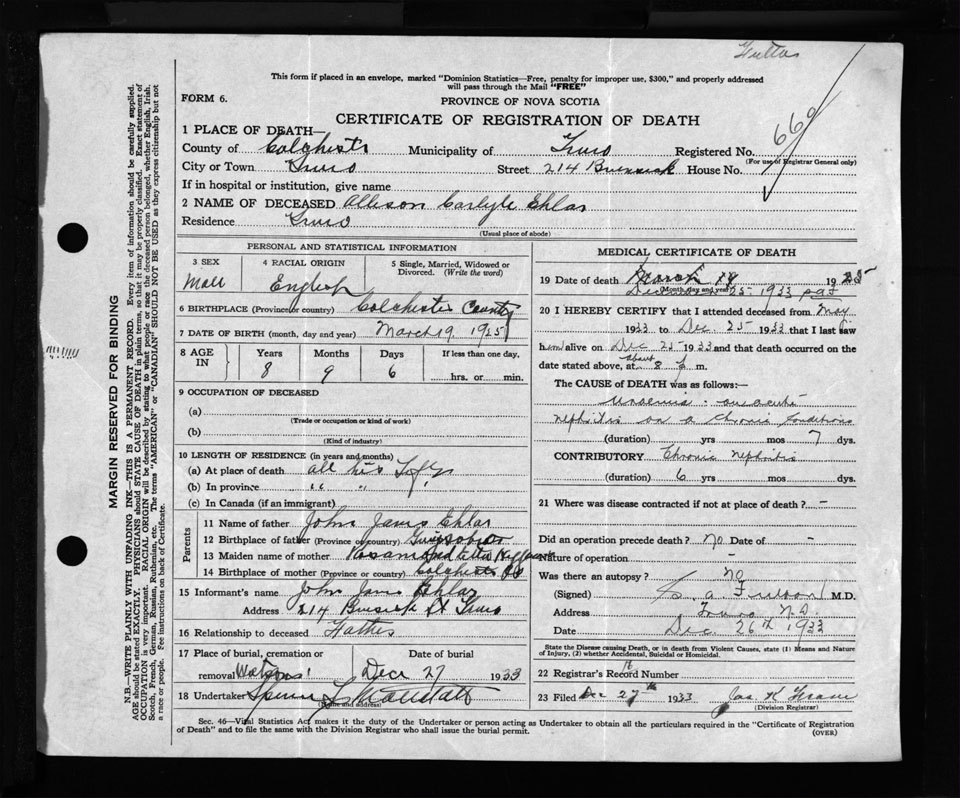 This form if placed in an envelope, marked "Dominion Statistics—Free, penalty for improper use, $300," and properly addressed
will pass through the Mail "FREE"
FORM 6.
PROVINCE OF NOVA SCOTIA
CERTIFICATE OF REGISTRATION OF DEATH
669
1 PLACE OF DEATH—
County of Colchester Municipality of Truro Registered No.
(For use of Registrar General only)
City or Town Truro Street 214 Brunswick House No.
If in hospital or institution, give name
2 NAME OF DECEASED Allison Carlyle Ehlar
Residence Truro
(Usual place of abode)
PERSONAL AND STATISTICAL INFORMATION
3 SEX 4 RACIAL ORIGIN 5 Single, Married, Widowed or
Divorced. (Write the word)
Male English
6 BIRTHPLACE (Province or country) Colchester County
7 DATE OF BIRTH (month, day and year) March 19 1925
8 AGE IN Years Months Days If less than one day.
8 9 6 hrs. or min.
9 OCCUPATION OF DECEASED
(a)
(Trade or occupation or kind of work)
(b)
(Kind of industry)
10 LENGTH OF RESIDENCE (in years and months)
(a) At place of death all his Life
(b) In province " "
(c) In Canada (if an immigrant)
Parents
11 Name of father John James Ehlar
12 Birthplace of father (Province or country)
13 Maiden name of mother Rosamond Etta
14 Birthplace of mother (Province or country) Colchester Co
15 Informant's name John James Ehlar
Address 214 St Truro
16 Relationship to deceased Father
17 Place of burial, cremation or Date of burial
removal Watsons Dec 27 1933
18 Undertaker
(Name and address)
MEDICAL CERTIFICATE OF DEATH
19 Date of death March 19 1925
(Month, day and year)
December 25 1933
20 I HEREBY CERTIFY that I attended deceased from May
1933 to Dec. 25 1933 that I last saw
him alive on Dec 25 1933 and that death occurred on
about
date stated above, at 8 m.
The CAUSE OF DEATH was as follows:—
Uraemia - acute
nephritis on a chronic condition
(duration) yrs mos 7 dys.
CONTRIBUTORY Chronic Nephritis
(duration) 6 yrs mos dys.
21 Where was disease contracted if not at place of death? -
Did an operation precede death? No Date of -
Nature of operation -
Was there an autopsy? no
(Signed) M.D.
Address Truro N.S.
Date Dec. 26th 1933
State the Disease causing Death, or in death from Violent Causes, state (1) Means and Nature
of Injury, (2) whether Accidental, Suicidal or Homicidal.
22 Registrar's Record Number
23 Filed Dec 27th 1933 Jas. K
(Division Registrar)
Sec. 46—Vital Statistics Act makes it the duty of the Undertaker or person acting as Undertaker to obtain all the particulars required in the "Certificate of Registration
of Death" and to file the same with the Division Registrar who shall issue the burial permit.
(OVER)
MARGIN RESERVED FOR BINDING
N.B.—WRITE PLAINLY WITH UNFADING INK—THIS IS A PERMANENT RECORD. Every item of information should be carefully supplied.
AGE should be stated EXACTLY. PHYSICIANS should STATE CAUSE OF DEATH in plain terms, so that it may be properly classified. Exact statement of
OCCUPATION is very important. RACIAL ORIGIN will be described by stating to what people or race the deceased person belonged, whether English, Irish,
Scotch, French, German, Russian, Ruthenian, etc. The terms "AMERICAN" or "CANADIAN" SHOULD NOT BE USED as they express citizenship but not
a race or people. Fee instructions on back of Certificate.